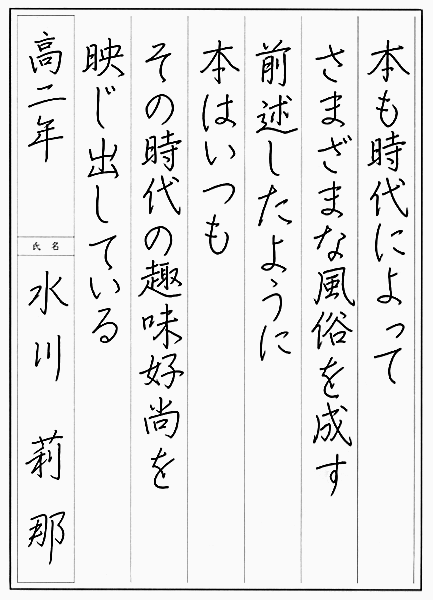 本も時代によって
さまざまな風俗を成す
前述したように
本はいつも
その時代の趣味好尚を
映じ出している
高二年
氏名
水川 莉那